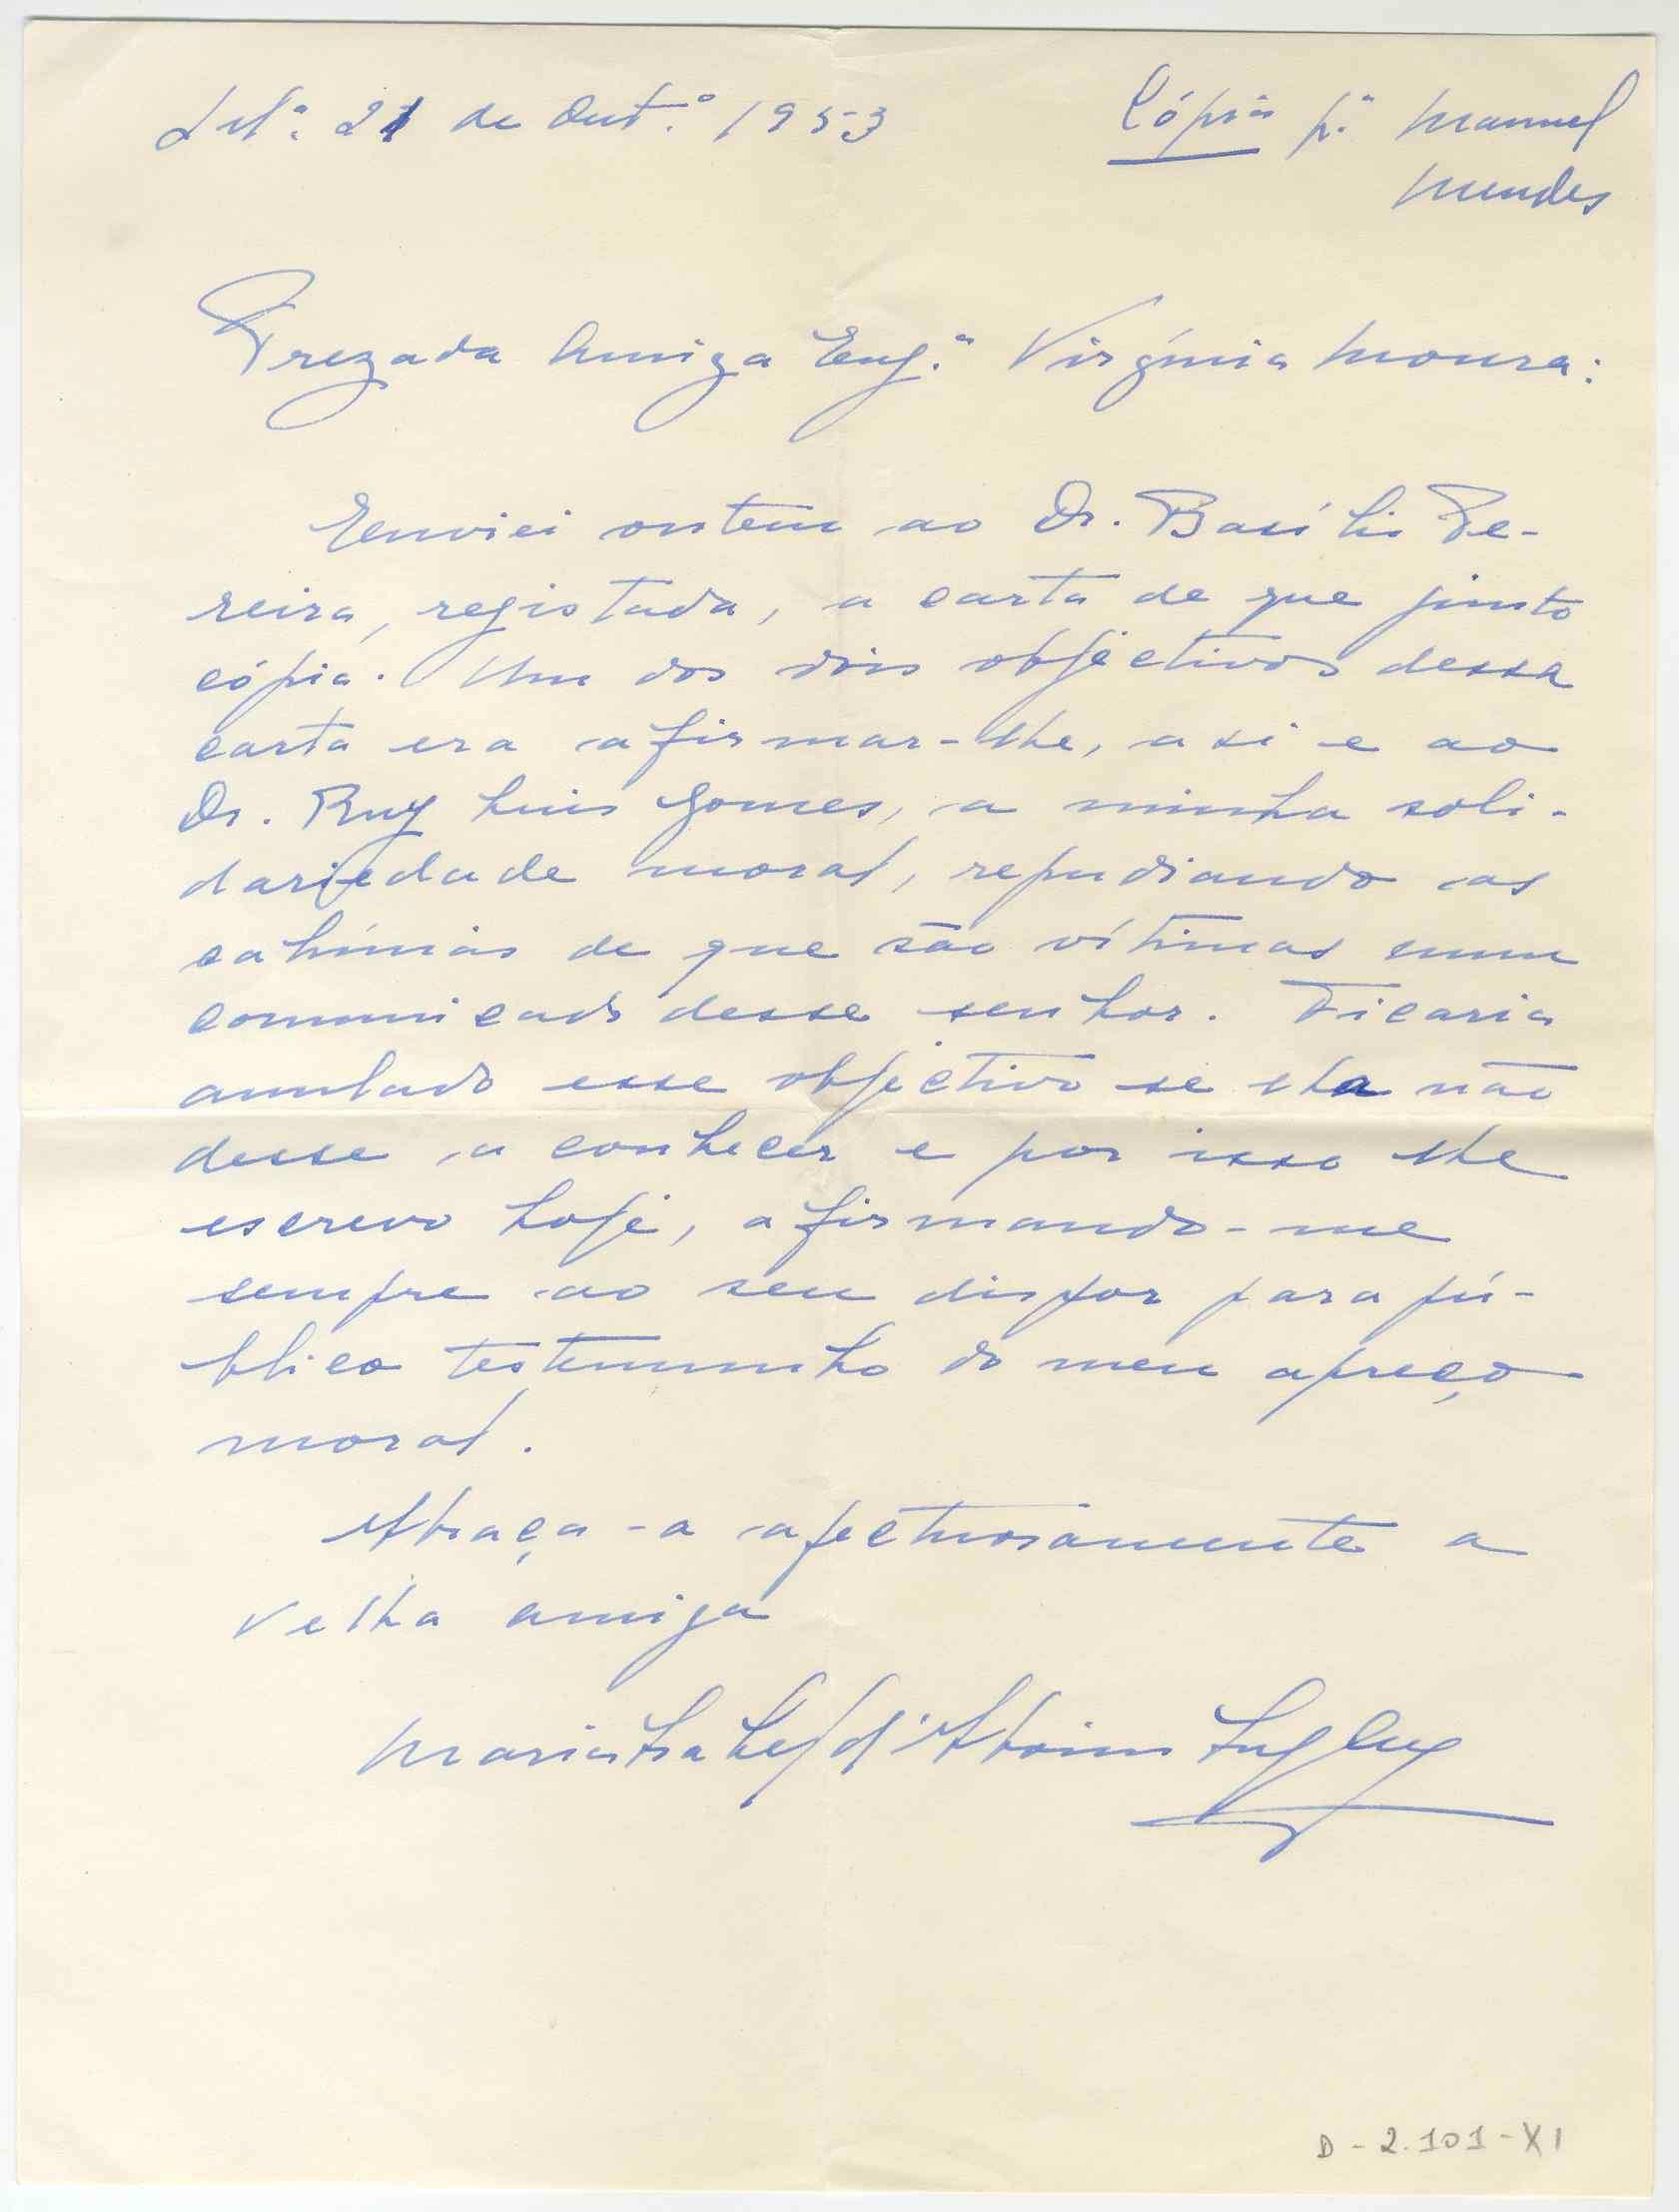 Lxª. 21 de Outº. 1953
Cópia pª. Manuel
Mendes
Prezada Amiga Engª. Virgínia Moura:
Enviei ontem ao Dr. Basílio Pe-
reira, registada, a carta de que junto
cópia. Um dos dois objectivos dessa
carta era afirmar-lhe, a si e ao
Dr. Ruy Luis Gomes, a minha soli-
dariedade moral, repudiando as
calúnias de que são vítimas num
comunicado desse senhor. Ficaria
anulado esse objectivo se lha não
desse a conhecer e por isso lhe
escrevo hoje, afirmando-me
sempre ao seu dispor para pú-
blico testemunho do meu apreço
moral.
Abraça-a afectuosamente a
velha amiga
Maria Isabel d'Aboim Inglez
D-2.101-XI